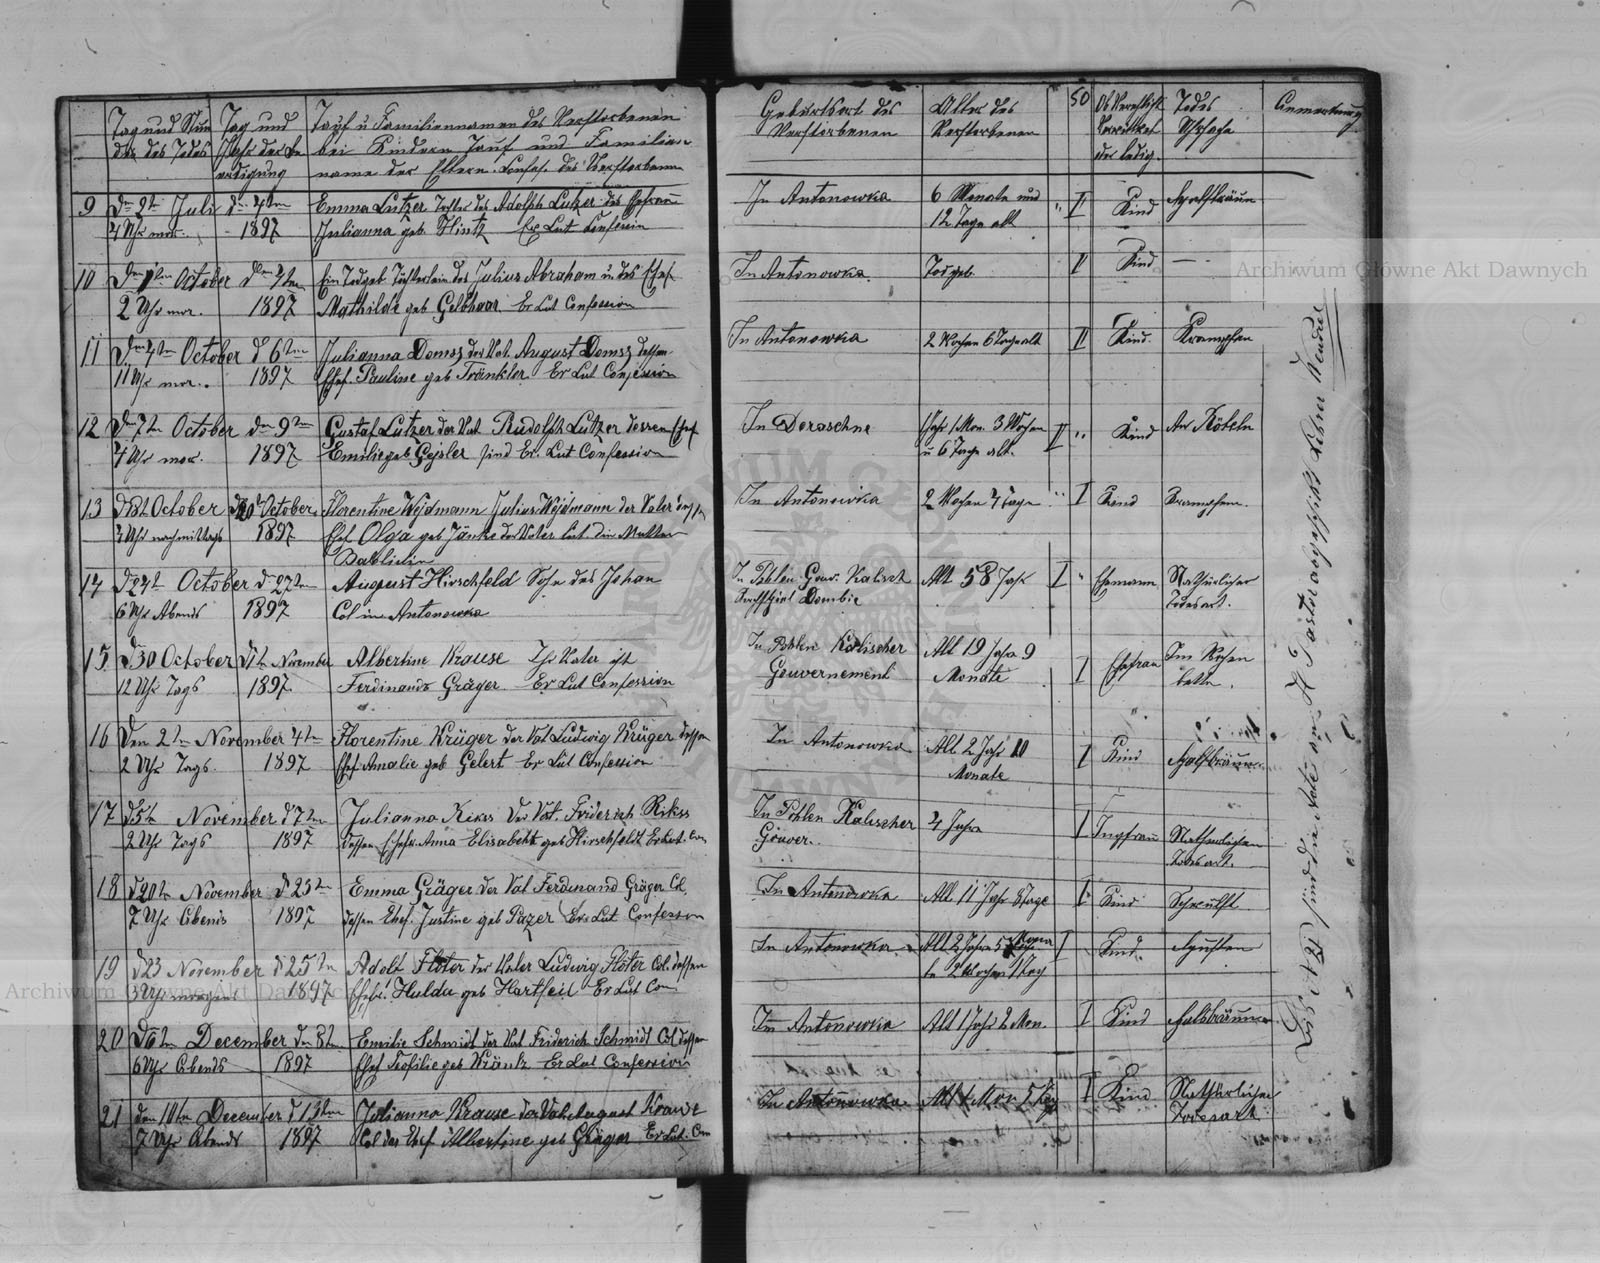 Tag und Stun
der des Todes
Tag und
Jahr der Be
erdigung
Tauf u Familiennamen des Verstorbenen
bei Kindern Tauf und Familien
name der Eltern. Confes. des Verstorbenen
Geburtsort des
Verstorbenen
Alter des
Verstorbenen
50
Ob Verehlicht
Verwittwet
oder ledig.
Todes
Uhrsache
Anmerkung
9 Den 2ten Juli den 4ten Emma Lutzer Tochter des Adolph Lutzer des Ehefrau
4 Uhr mor. 1897 Julianna geb. Hintz Ev Lut Confession
In Antonowka 6 Monate und
12 Tage alt
" I Kind Halsbräun
10 Den 1ten October den 4ten Ein Todgeb Töchterlein des Julius Abraham u des Ehef
2 Uhr mor. 1897 Mathilde geb Gelbhaar Ev Lut Confession
In Antonowka. Todgeb. II Kind —
11 Den 4ten October d 6ten Julianna Domss der Vat. August Domss dessen
11 Uhr mor. 1897 Ehef. Pauline geb Tränkler Ev Lut Confession
In Antonowka 2 Wochen 6 Tage alt II Kind. Krampfen
12 Den 7ten October den 9ten Gustaf Lutzer der Vat Rudolph Lutzer dessen Ehef
4 Uhr mor. 1897 Emilie geb Gesler sind Ev. Lut Confession
In Deraschne 1 Jahr 1 Mon. 3 Wochen
u 6 Tage alt. II " Kind An Röteln
13 October October Florentine Weidmann Julius Weidmann der Vater dessen
Uhr nachmittags 1897 Ehef Olga geb Jänke der Vater Lut. die Mutter
Babtistin
In Antonowka 2 Wochen 4 Tage " I Kind Krampfen.
14 D 24t October d 27ten August Hirschfeld Sohn des Johan
6 Uhr Abends 1897 Col in Antonowka
In Pohlen Gouv. Kalisch
Kirchspiel Dombie
Alt 58 Jahr I " Ehemann Nathürlicher
Todesart.
15. D 30 October d 1ten November Albertine Krause Ihr Vater ist
12 Uhr Tags 1897. Ferdinands Gräger Ev Lut Confession
In Pohlen Kalischer
Gouvernement
Alt 19 Jahr 9
Monate
I Ehefrau Im Wochen
bette.
16 Den 2ten November 4ten Florentine Krüger der Vat Ludwig Krüger dessen
2 Uhr Tags. 1897 Ehef Amalie geb Gelert Ev Lut Confession
In Antonowka Alt 2 Jahr 10
Monate
I Kind Halsbräune
17 d 5ten November d 7ten Julianna Rikss Der Vat. Friderich Rikss
2 Uhr Tags 1897 dessen Ehefr. Anna Elisabeht geb Hirschfeldt Ev Lut. Con
In Pohlen Kalischer
Gouver.
4 Jahre I Jugfrau
Todesart.
18 d 20ten November d 23ten Emma Gräger der Vat Ferdinand Gräger Col.
7 Uhr Abends 1897 dessen Ehef. Justine geb Pazer Ev Lut Confession
In Antonowka Alt 11 Jahr 8 Tage I Kind
19 d 23 November d 25ten Adolf Flöter der Vater Ludewig Flöter Col. dessen
3 Uhr morgens 1897 Ehefr. Hulda geb Hartfeil Ev Lut Con
In Antonowka. Alt 2 Jahre 5 Mona
te 2 Wochen 1 Tag I Kind. Husten
20 D 6ten December den 8ten Emilie Schmidt der Vat Friderich Schmidt Col dessen
6 Uhr Abends 1897 Ehef Teofilie geb Kräntz Ev Lut Confession
In Antonowka Alt 1 Jahr 2 Mon. I Kind Halsbräune
21 den 10ten December d 13ten Julianna Krause der Vat. August Krause
7 Uhr Abends 1897 Col der Ehef Albertine geb Gräger Ev Lut. Con
In Antonowka. Alt 4 Mon 5 Tag I Kind Nathürlicher
Todesart
Bis N 21 sind die
Archiwum Główne Akt Dawnych
Archiwum Główne Akt Dawnych
ARCHIWUM GŁÓWNE AKT DAWNYCH